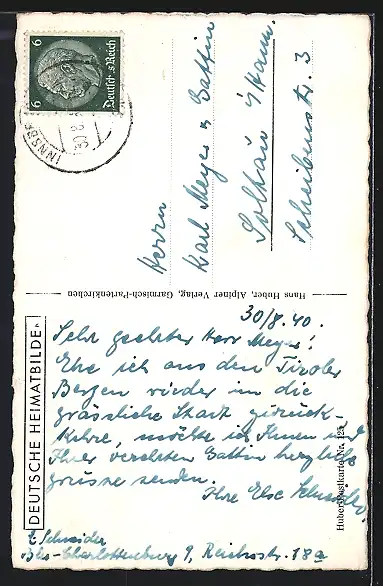 6 6
Deutsches Reich
INNSB
30.8
Herrn
Karl Meyer u Gattin
Soltau i/Hann.
Scheibenstr. 3
Hans Huber, Alpiner Verlag, Garmisch-Partenkirchen
DEUTSCHE HEIMATBILDER
30/8.40.
Sehr geehrter Herr Meyer!
Ehe ich aus den Tiroler
Bergen wieder in die
grässliche Stadt zurück-
kehre, möchte ich Ihnen und
Ihrer verehrten Gattin herzliche
grüsse senden.
Ihre Else Schneider
E Schneider
Bln-Charlottenburg 9, Reichsstr. 18a
Huber-Postkarte Nr. 125